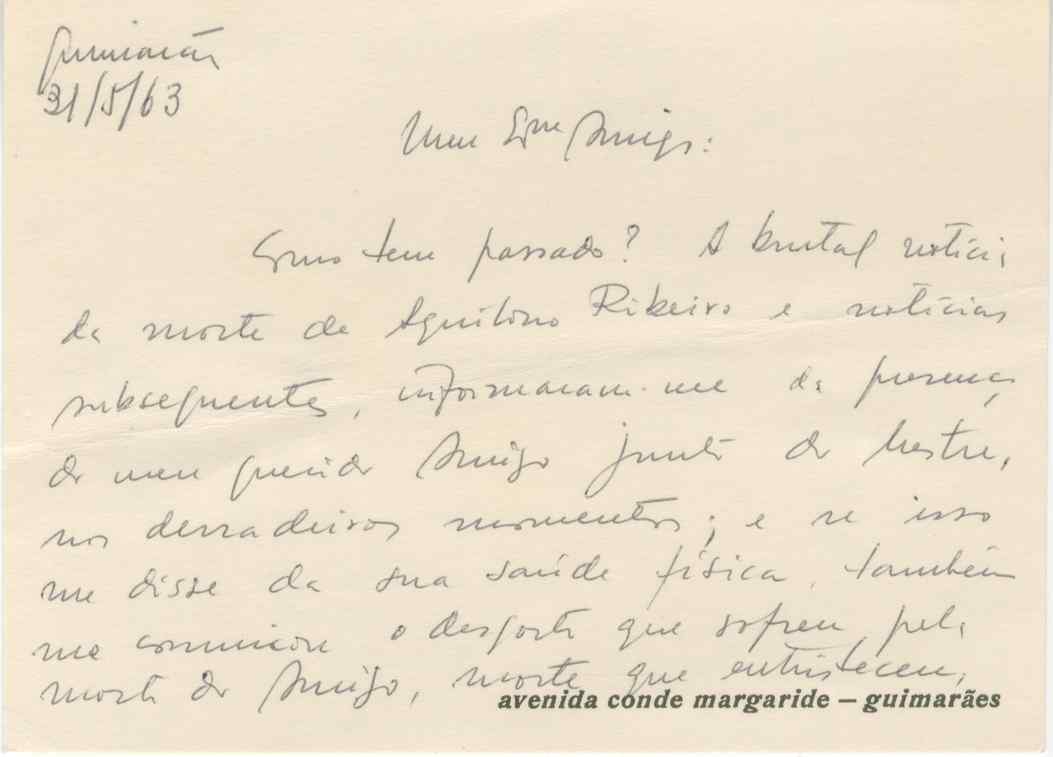 Guimarães
31/5/63
Meu Exmo Amigo:
Como tem passado? A brutal notícia
da morte de Aquilino Ribeiro e notícias
subsequentes, informaram-me da presença
do meu querido Amigo junto do Mestre,
nos derradeiros momentos; e se isso
me disse da sua saúde física, também
me comunicou o desgosto que sofreu pela
morte do Amigo, morte que entristeceu,
avenida conde margaride – guimarães